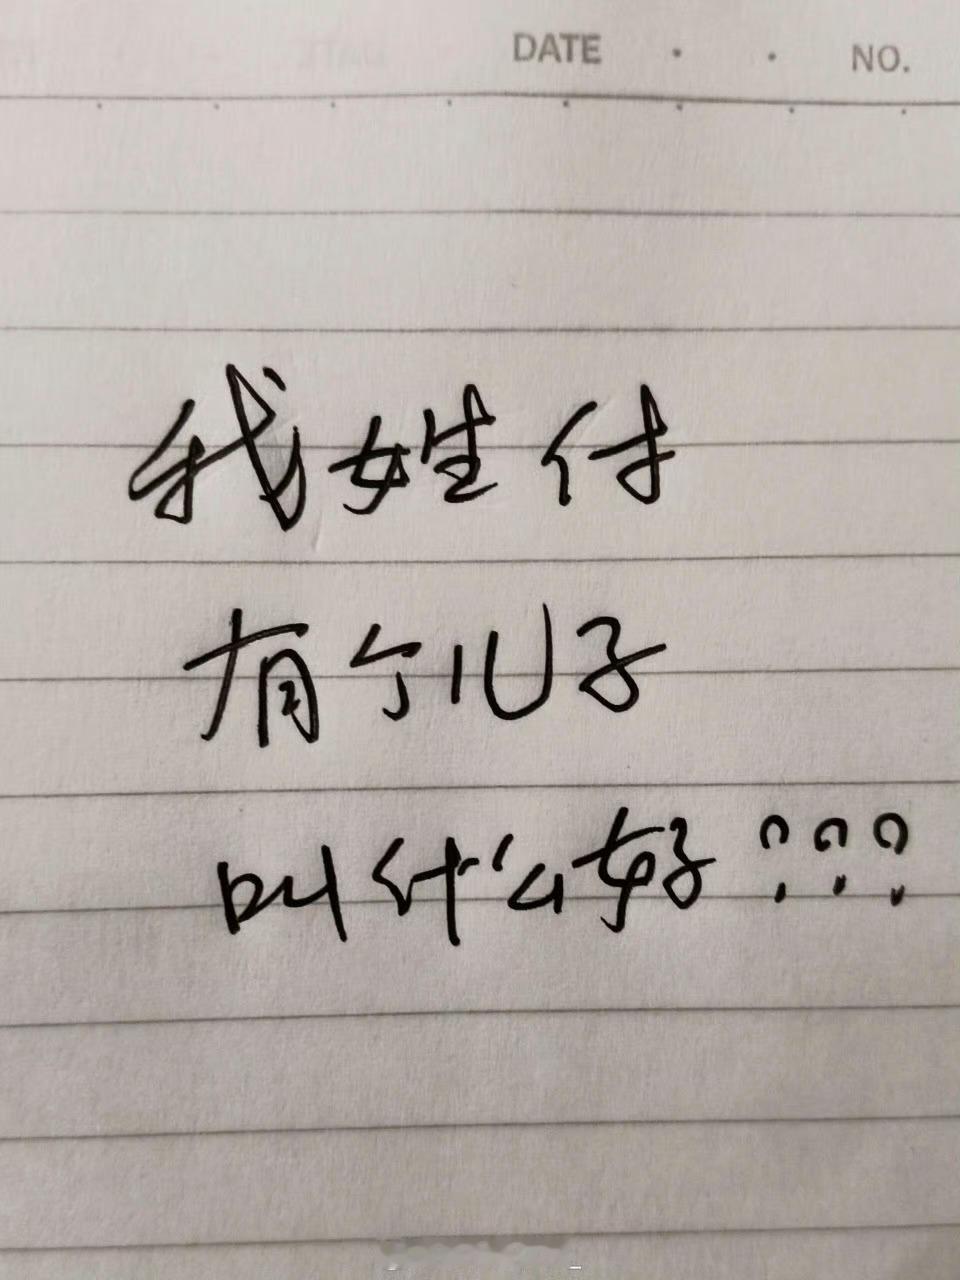 DATE · · NO.
我姓付
有个儿子
叫什么好???